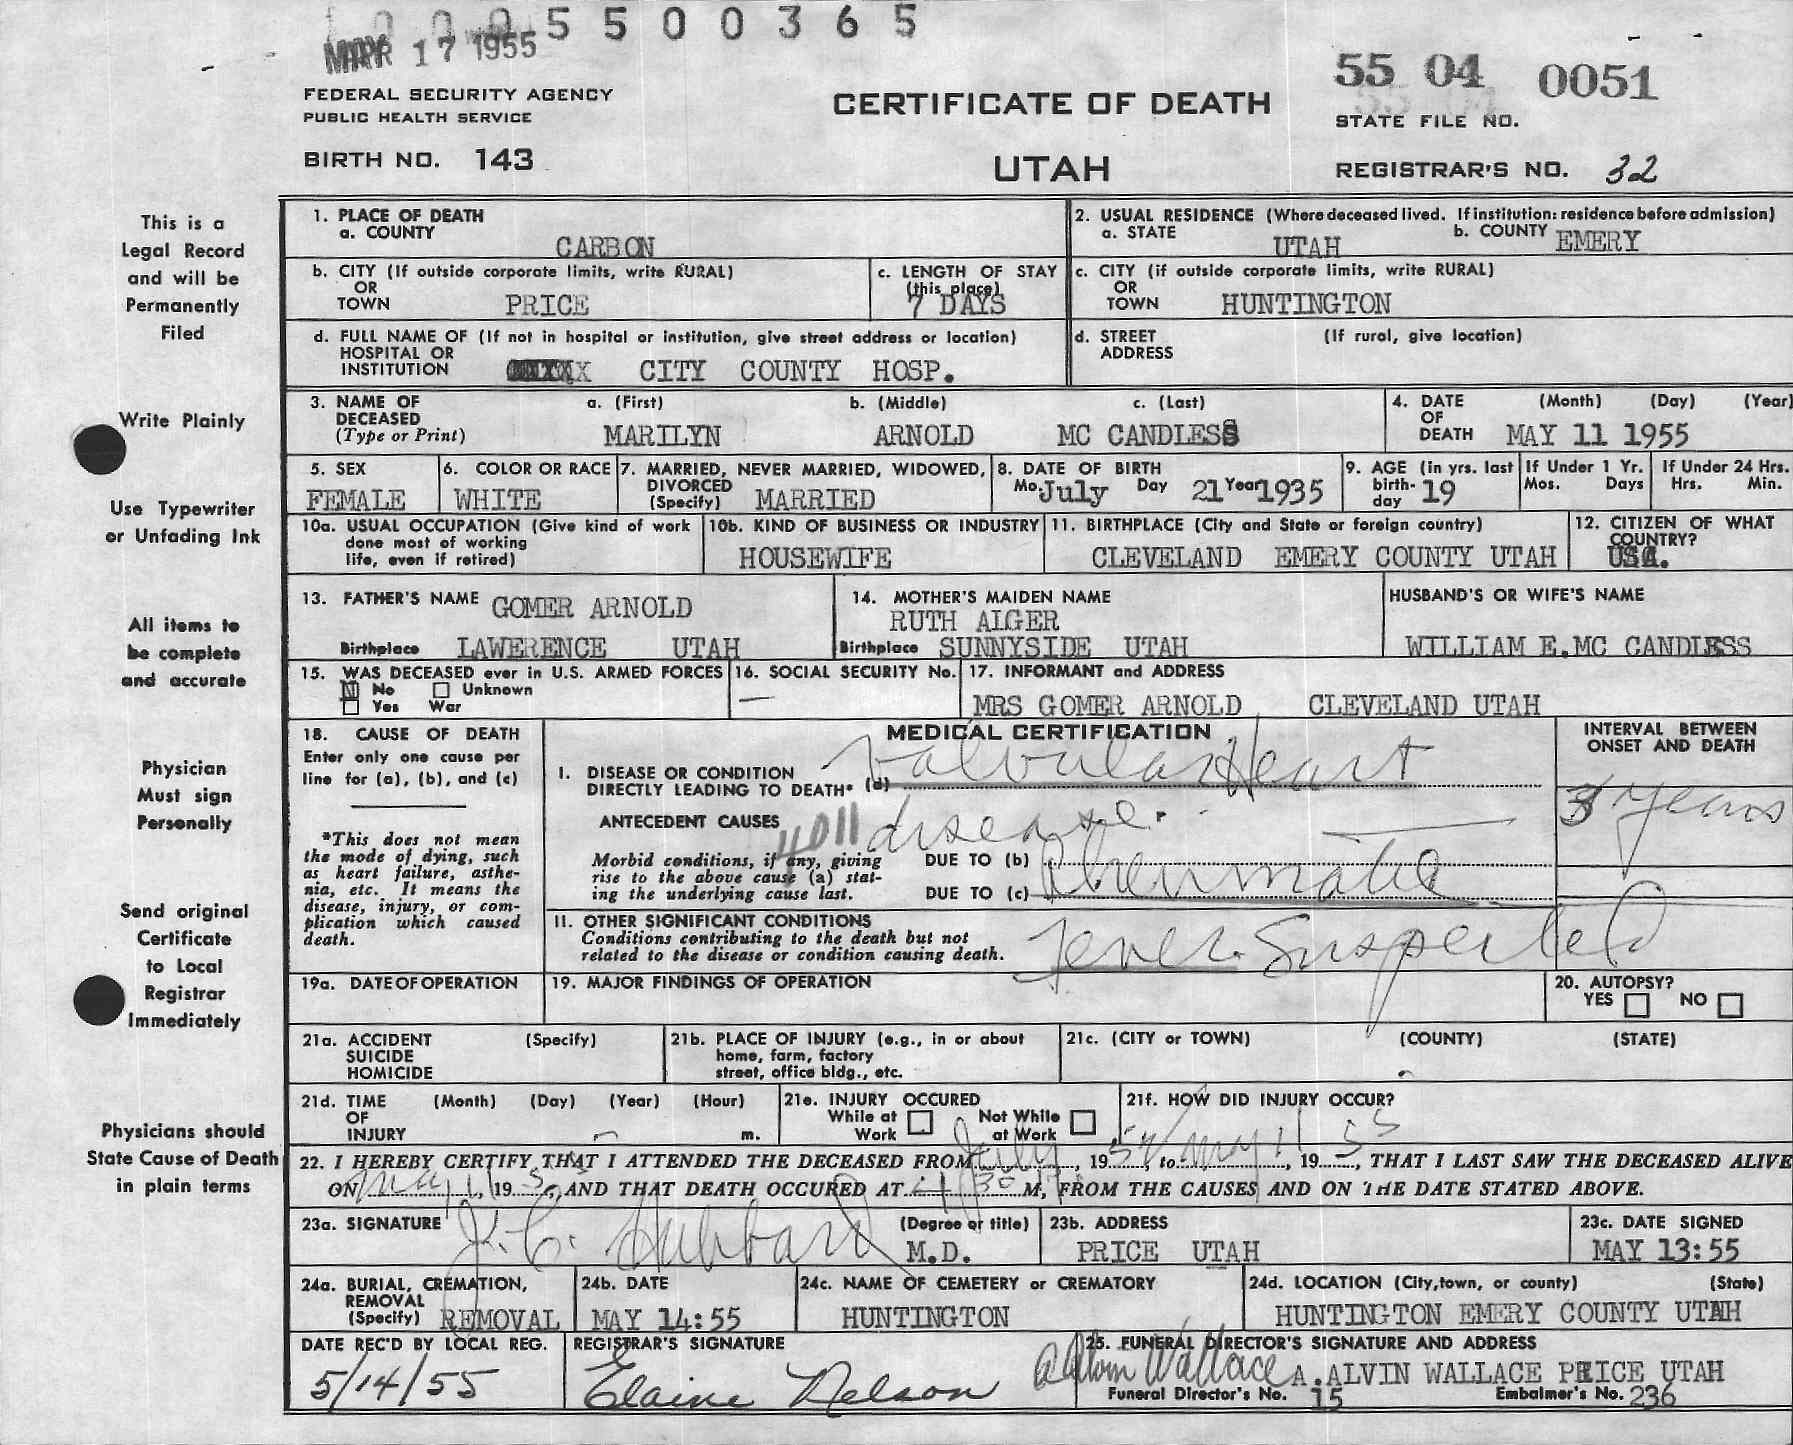 5500365
MAR 17 1955
55 04 0051
FEDERAL SECURITY AGENCY
PUBLIC HEALTH SERVICE
CERTIFICATE OF DEATH
STATE FILE NO.
BIRTH NO. 143
UTAH
REGISTRAR'S NO. 32
This is a
Legal Record
and will be
Permanently
Filed
Write Plainly
Use Typewriter
or Unfading Ink
All items to
be complete
and accurate
Physician
Must sign
Personally
Send original
Certificate
to Local
Registrar
Immediately
Physicians should
State Cause of Death
in plain terms
1. PLACE OF DEATH
a. COUNTY
CARBON
2. USUAL RESIDENCE (Where deceased lived. If institution: residence before admission)
a. STATE UTAH b. COUNTY EMERY
b. CITY (If outside corporate limits, write RURAL)
OR
TOWN PRICE
c. LENGTH OF STAY
(this place)
7 DAYS
c. CITY (if outside corporate limits, write RURAL)
OR
TOWN HUNTINGTON
d. FULL NAME OF (If not in hospital or institution, give street address or location)
HOSPITAL OR
INSTITUTION CITY COUNTY HOSP.
d. STREET (If rural, give location)
ADDRESS
3. NAME OF a. (First) b. (Middle) c. (Last)
DECEASED
(Type or Print) MARILYN ARNOLD MC CANDLESS
4. DATE (Month) (Day) (Year)
OF
DEATH MAY 11 1955
5. SEX
FEMALE
6. COLOR OR RACE
WHITE
7. MARRIED, NEVER MARRIED, WIDOWED,
DIVORCED
(Specify) MARRIED
8. DATE OF BIRTH
Mo. July Day 21 Year 1935
9. AGE (in yrs. last
birth-
day 19
If Under 1 Yr.
Mos. Days
If Under 24 Hrs.
Hrs. Min.
10a. USUAL OCCUPATION (Give kind of work
done most of working
life, even if retired)
10b. KIND OF BUSINESS OR INDUSTRY
HOUSEWIFE
11. BIRTHPLACE (City and State or foreign country)
CLEVELAND EMERY COUNTY UTAH
12. CITIZEN OF WHAT
COUNTRY?
USA.
13. FATHER'S NAME GOMER ARNOLD
Birthplace LAWERENCE UTAH
14. MOTHER'S MAIDEN NAME
RUTH ALGER
Birthplace SUNNYSIDE UTAH
HUSBAND'S OR WIFE'S NAME
WILLIAM E.MC CANDLESS
15. WAS DECEASED ever in U.S. ARMED FORCES
No Unknown
Yes War
16. SOCIAL SECURITY No.
—
17. INFORMANT and ADDRESS
MRS GOMER ARNOLD CLEVELAND UTAH
18. CAUSE OF DEATH
Enter only one cause per
line for (a), (b), and (c)
*This does not mean
the mode of dying, such
as heart failure, asthe-
nia, etc. It means the
disease, injury, or com-
plication which caused
death.
MEDICAL CERTIFICATION
I. DISEASE OR CONDITION
DIRECTLY LEADING TO DEATH* (a) Valvular Heart
disease.
ANTECEDENT CAUSES
4011
Morbid conditions, if any, giving
rise to the above cause (a) stat-
ing the underlying cause last.
DUE TO (b)
DUE TO (c) Rheumatic
II. OTHER SIGNIFICANT CONDITIONS
Conditions contributing to the death but not
related to the disease or condition causing death.
Fever. Suspected
INTERVAL BETWEEN
ONSET AND DEATH
3 years
19a. DATE OF OPERATION
19. MAJOR FINDINGS OF OPERATION
20. AUTOPSY?
YES NO
21a. ACCIDENT (Specify)
SUICIDE
HOMICIDE
21b. PLACE OF INJURY (e.g., in or about
home, farm, factory
street, office bldg., etc.
21c. (CITY or TOWN) (COUNTY) (STATE)
21d. TIME (Month) (Day) (Year) (Hour)
OF
INJURY m.
21e. INJURY OCCURED
While at Work
Not While at Work
21f. HOW DID INJURY OCCUR?
22. I HEREBY CERTIFY THAT I ATTENDED THE DECEASED FROM July, 1954, to May 11, 1955, THAT I LAST SAW THE DECEASED ALIVE
ON May 11, 1955, AND THAT DEATH OCCURED AT 4:30 M, FROM THE CAUSES AND ON THE DATE STATED ABOVE.
23a. SIGNATURE (Degree or title)
J. C. Hubbard M.D.
23b. ADDRESS
PRICE UTAH
23c. DATE SIGNED
MAY 13:55
24a. BURIAL, CREMATION,
REMOVAL
(Specify) REMOVAL
24b. DATE
MAY 14:55
24c. NAME OF CEMETERY or CREMATORY
HUNTINGTON
24d. LOCATION (City,town, or county) (State)
HUNTINGTON EMERY COUNTY UTAH
DATE REC'D BY LOCAL REG.
5/14/55
REGISTRAR'S SIGNATURE
Elaine Nelson
25. FUNERAL DIRECTOR'S SIGNATURE AND ADDRESS
A Alvin Wallace A.ALVIN WALLACE PRICE UTAH
Funeral Director's No. 15 Embalmer's No. 236